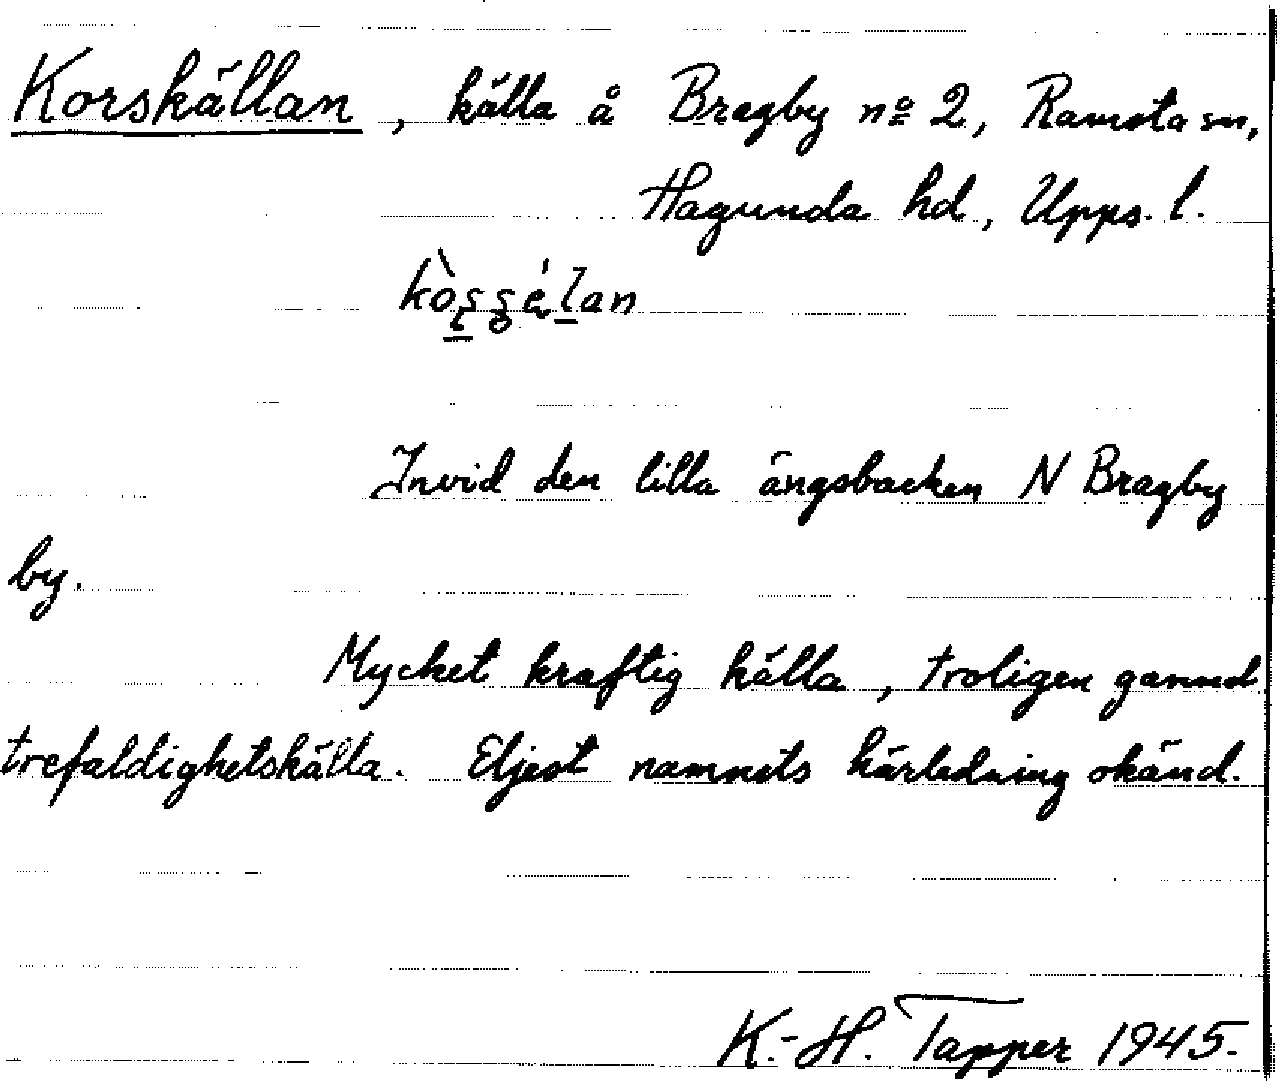 Korskällan, källa å Bragby nº 2, Ramsta sn,
Hagunda hd, Upps. l.
Invid den lilla ängsbacken N Bragby
by.
Mycket kraftig källa, troligen gammal
trefaldighetskälla. Eljest namnets härledning okänd.
K.-H. Tapper 1945.